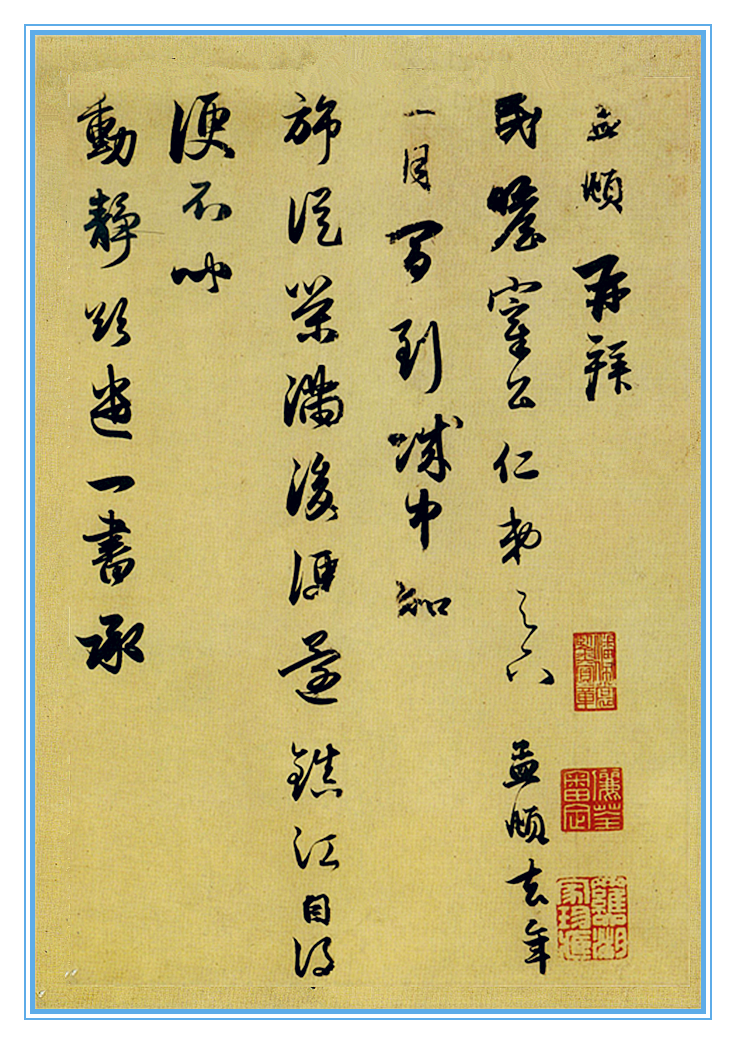 孟頫再拜
民瞻宰公仁弟足下 孟頫去年
一月間到城中知
旆從榮滿後便還鎮江自後
便不聞
動靜欲遣一書承